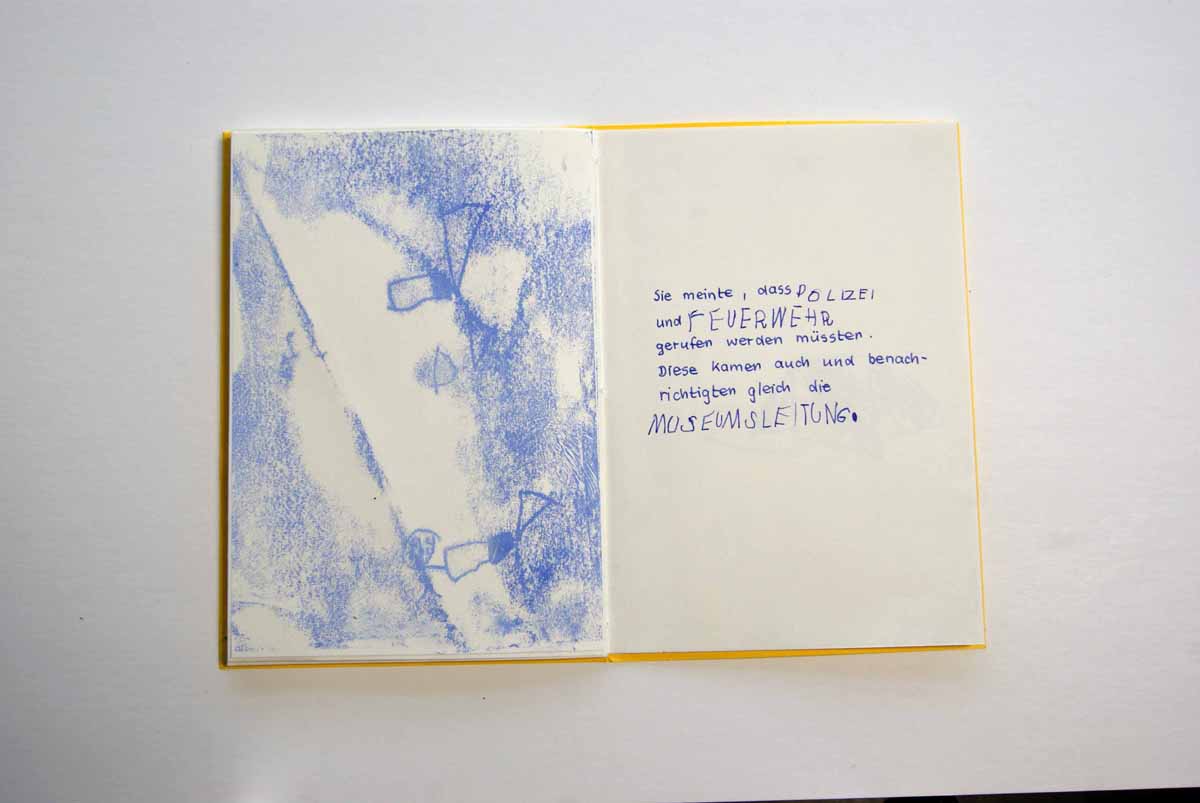 Sie meinte, dass POLIZEI
und FEUERWEHR
gerufen werden müssten.
Diese kamen auch und benach-
richtigten gleich die
MUSEUMSLEITUNG.